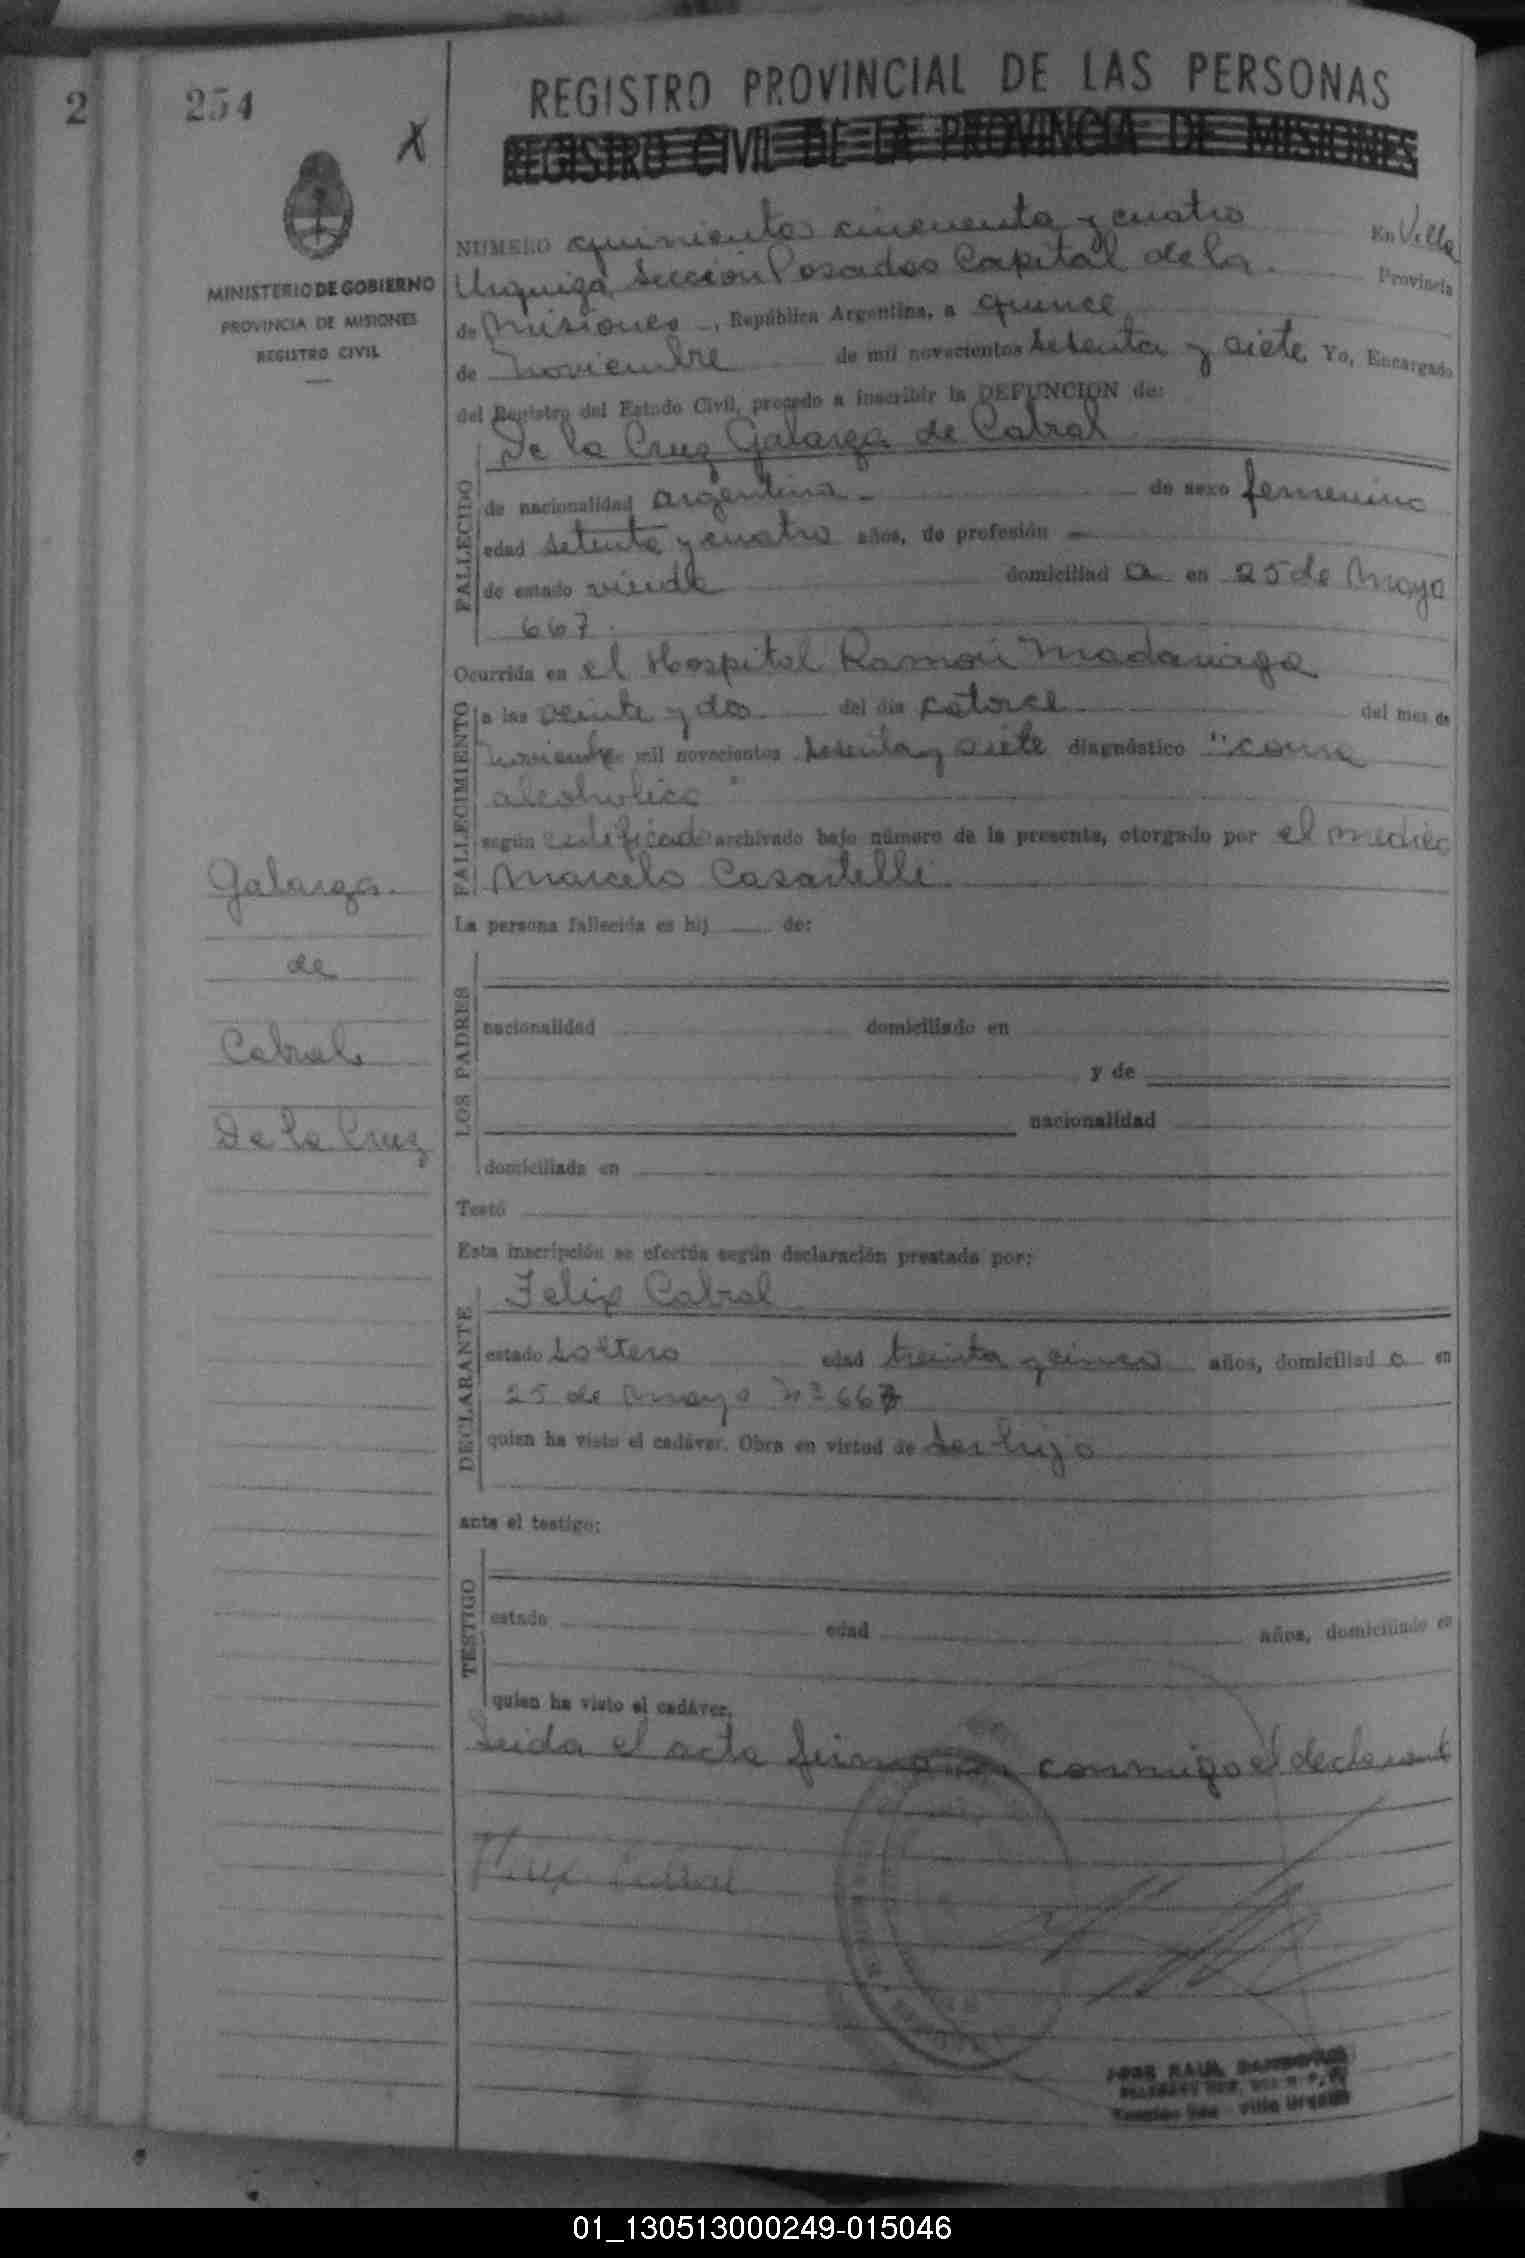 2
254
X
REGISTRO PROVINCIAL DE LAS PERSONAS
REGISTRO CIVIL DE LA PROVINCIA DE MISIONES
MINISTERIO DE GOBIERNO
PROVINCIA DE MISIONES
REGISTRO CIVIL
NUMERO quinientos cincuenta y cuatro En Villa
Urquiza Sección Posadas Capital de la Provincia
de Misiones, República Argentina, a quince
de Noviembre de mil novecientos setenta y siete Yo, Encargado
del Registro del Estado Civil, procedo a inscribir la DEFUNCION de:
FALLECIDO
De la Cruz Galarza de Cabral
de nacionalidad argentina de sexo femenino
edad setenta y cuatro años, de profesión —
de estado viuda domiciliad a en 25 de Mayo
667.
Ocurrida en el Hospital Ramón Madariaga
FALLECIMIENTO
a las veinte y dos del día catorce del mes de
Noviembre mil novecientos setenta y siete diagnóstico "coma
alcoholico"
según certificado archivado bajo número de la presente, otorgado por el medico
Marcelo Casartelli.
La persona fallecida es hij de:
LOS PADRES
nacionalidad domiciliado en
y de
nacionalidad
domiciliada en
Testó
Esta inscripción se efectúa según declaración prestada por:
DECLARANTE
Felix Cabral
estado soltero edad treinta y cinco años, domiciliad o en
25 de Mayo Nº 667
quien ha visto el cadáver. Obra en virtud de ser hijo
ante el testigo:
TESTIGO
estado edad años, domiciliado en
quien ha visto el cadáver.
Leida el acta firma conmigo el declarante
Felix Cabral
JOSE RAUL
Villa Urquiza
Galarza.
de
Cabral
De la Cruz
01_130513000249-015046